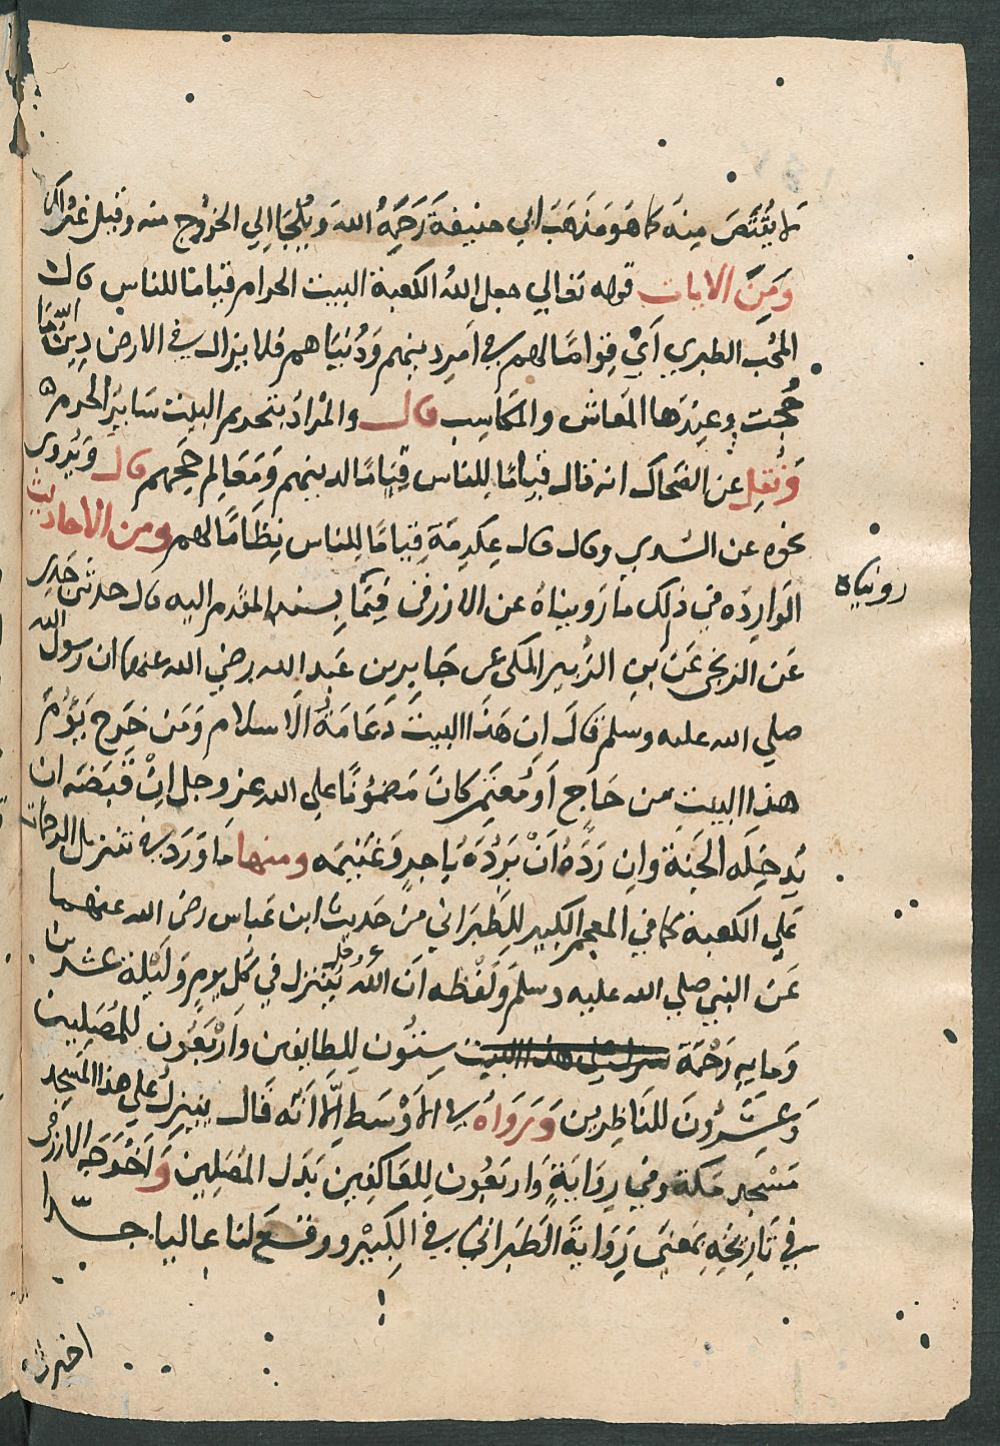 لا يُقْتَصَ مِنهَ كما هَوَ مَذهَبَ ابي حنيفةَ رَحَمِهُ اللهَ ويُلجَا الِي الخرُوج منه وقبل غيْر
وَمِنَ الايات قوله تَعَالي جعل اللهُ الكعبةَ البيت الحرام قيامًا للناس قال
المُحُب الطبري اَيْ قِوامًا لهم في اَمرِ دينهم وَدُنيَاهم فلا يزال في الارض دِين ما
حُجت وعِندَهَا المَعاش والمكَاسِب قال والمُرادَ بتحريم البيت سَايرَ الحرم
وَنُقِل عن الضَحاك انه قال قيامًا لِلناس قِيَامًا لدينهم وَمَعَالِم حَجِهم قال وَيُروى
نحوه عن السُدي وقال قال عِكرِمَةَ قِيامًا لِلناس نِظَامًا لهم ومن الاحاديث
الوَارِدَه في ذلك ما رَوينَاهُ عن الازرقى فِيمَا بِسنده المقدم اليه قال حدثنى جَدِى
رونيَاه
عَن الزنجى عَنَ ابىِ الزُبير المكى عن جَابِر بن عَبد الله رضي الله عنهما ان رَسول الله
صلي الله عليه وسلم قالَ اِن هَذَا البيتَ دَعَامَةُ الاسلام وَمَن خَرج يَؤُمُّ
هذا البيتِ من حَاجٍ اَو مُعتَمِرٍ كانَ مَضمُونًا علي الله عز وجل اِنْ قَبَضَه ان
يُدخِلَه الجَنة وان رَدَّهُ اَنْ يَرُدَهَ بِاَجرٍ وَغَنِيمَه ومنها مَا وَرَدَ في تَنزل الرحمات
عَلي الكعبه كما في المعجم الكبير للطَبَرَاني مِن حَديث ابن عَباس رضى الله عنهما
عَن النبي صلي الله عليه وسلم وَلَفْظه اَن اللهُ عز وجل يُنزل في كل يومٍ وَلَيْلة عشرين
وَمايهِ رَحْمَة سِتُون لِلطايفين وَاَرْبَعُون للمُصَلِيين
وَعِشرُونَ للنَاظِرين وَرَوَاهُ في الاَوْسَط اِلَّا اَنَّه قَال ينزِلُ علي هذا المَسجِد
مَسْجِد مَكة وفي رِوَايَةٍ وَاربَعُون لِلعَاكفِين بَدَل المُصَلِين وَاَخْرَجَه الازرَقى
في تَارِيخِهِ بِمَعنَى رِوَايةَ الطَبَرَاني في الكَبِيْر ووقعَ لنا عاليا جدًّا
اخبرنا